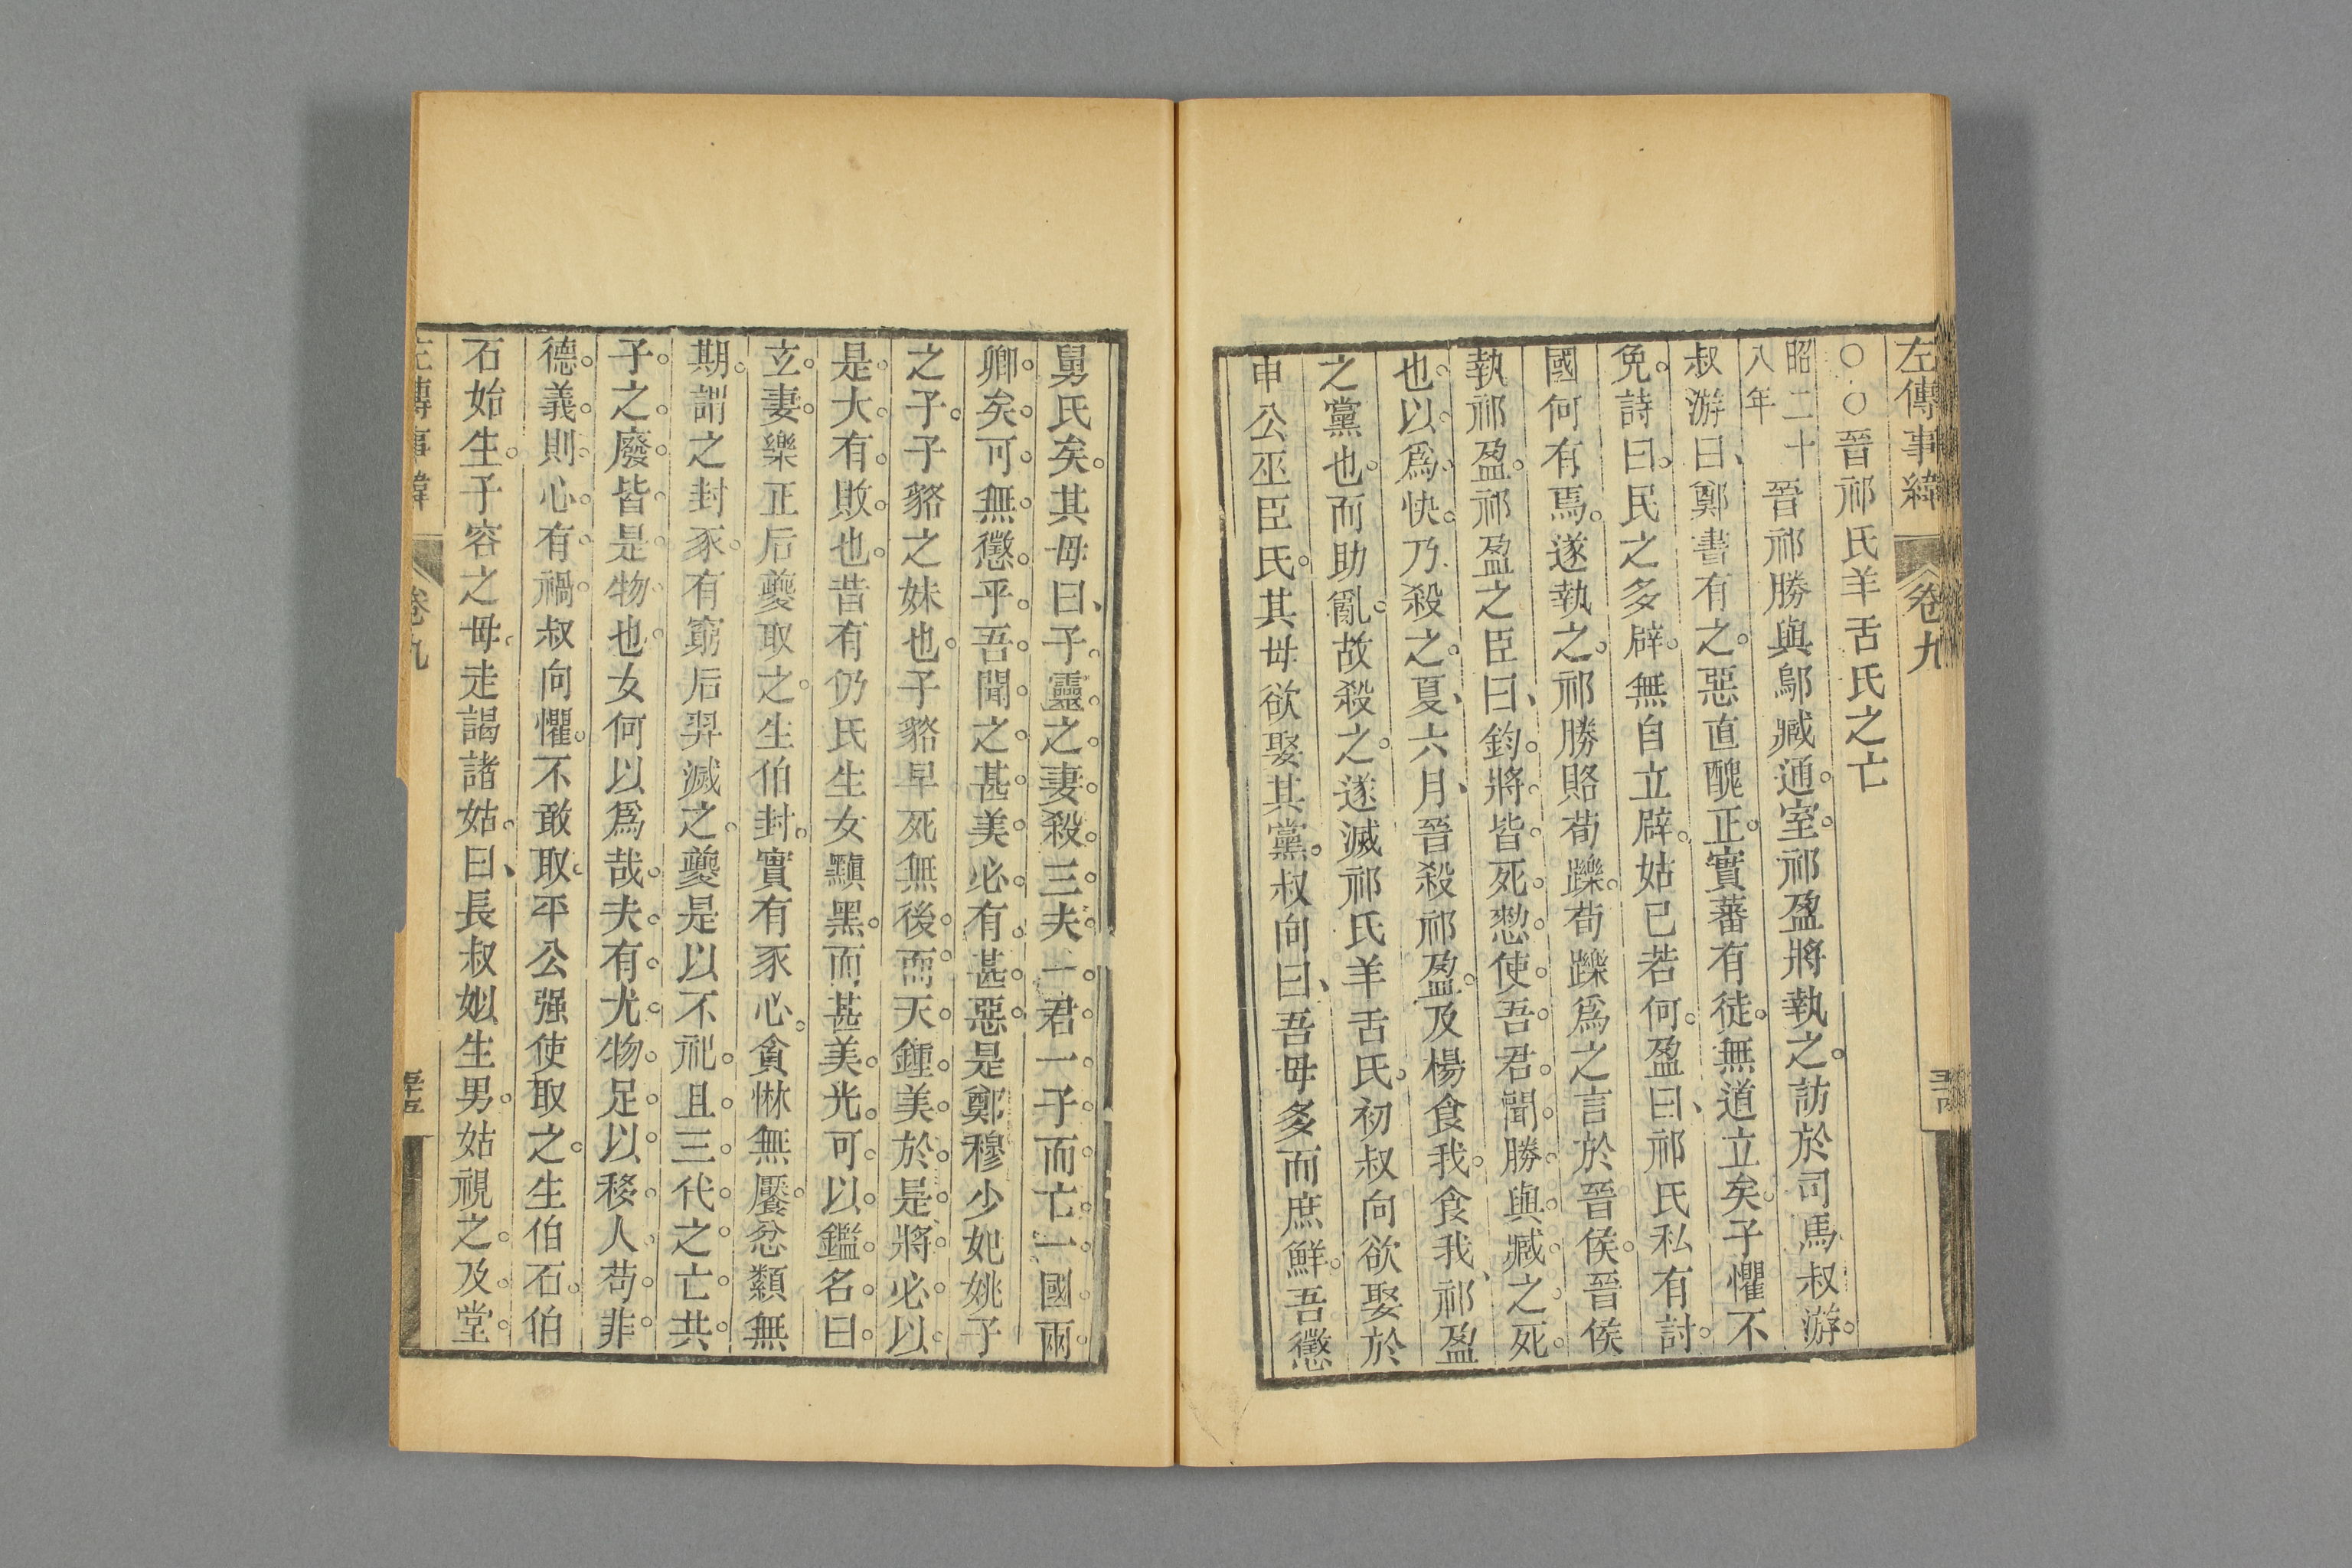 左傳事緯 卷九
○○晉祁氏羊舌氏之亡
昭二十八年 晉祁勝與鄔臧通室。祁盈將執之。訪於司馬叔游。
叔游曰、鄭書有之。惡直醜正。實蕃有徒。無道立矣。子懼不
免。詩曰。民之多辟。無自立辟。姑已若何。盈曰、祁氏私有討。
國何有焉。遂執之。祁勝賂荀躒。荀躒爲之言於晉侯。晉侯
執祁盈。祁盈之臣曰、鈞。將。皆。死。憖。使。吾。君。聞。勝。與。臧。之。死。
也。以。爲。快。乃殺之。夏、六月、晉殺祁盈。及楊食我。食我、祁盈
之黨也。而助亂。故殺之。遂滅祁氏羊舌氏。初叔向欲娶於
申公巫臣氏。其母欲娶其黨。叔向曰、吾母多而庶鮮。吾懲
舅氏矣。其母曰、子。靈。之。妻。殺。三。夫。一。君。一。子。而。亡。一。國。兩。
卿。矣。可。無。懲。乎。吾。聞。之。甚。美。必。有。甚。惡。是鄭穆少妃姚子
之子。子貉之妹也。子貉早死無後。而。天。鍾。美。於。是。將。必。以。
是。大。有。敗。也。昔有仍氏生女黰黑。而甚美。光。可。以。鑑。名。曰。
玄。妻。樂正后夔取之。生伯封。實有豕心。貪惏無饜。忿纇無
期。謂之封豕。有窮后羿滅之。夔是以不祀。且。三。代。之。亡。共。
子。之。廢。皆。是。物。也。女何以爲哉。夫。有。尤。物。足。以。移。人。苟。非。
德。義。則。心。有。禍。叔向懼。不敢取。平公强使取之。生伯石。伯
石始生。子容之母。走謁諸姑。曰、長叔姒生男。姑視之。及。堂。
左傳事緯 卷九